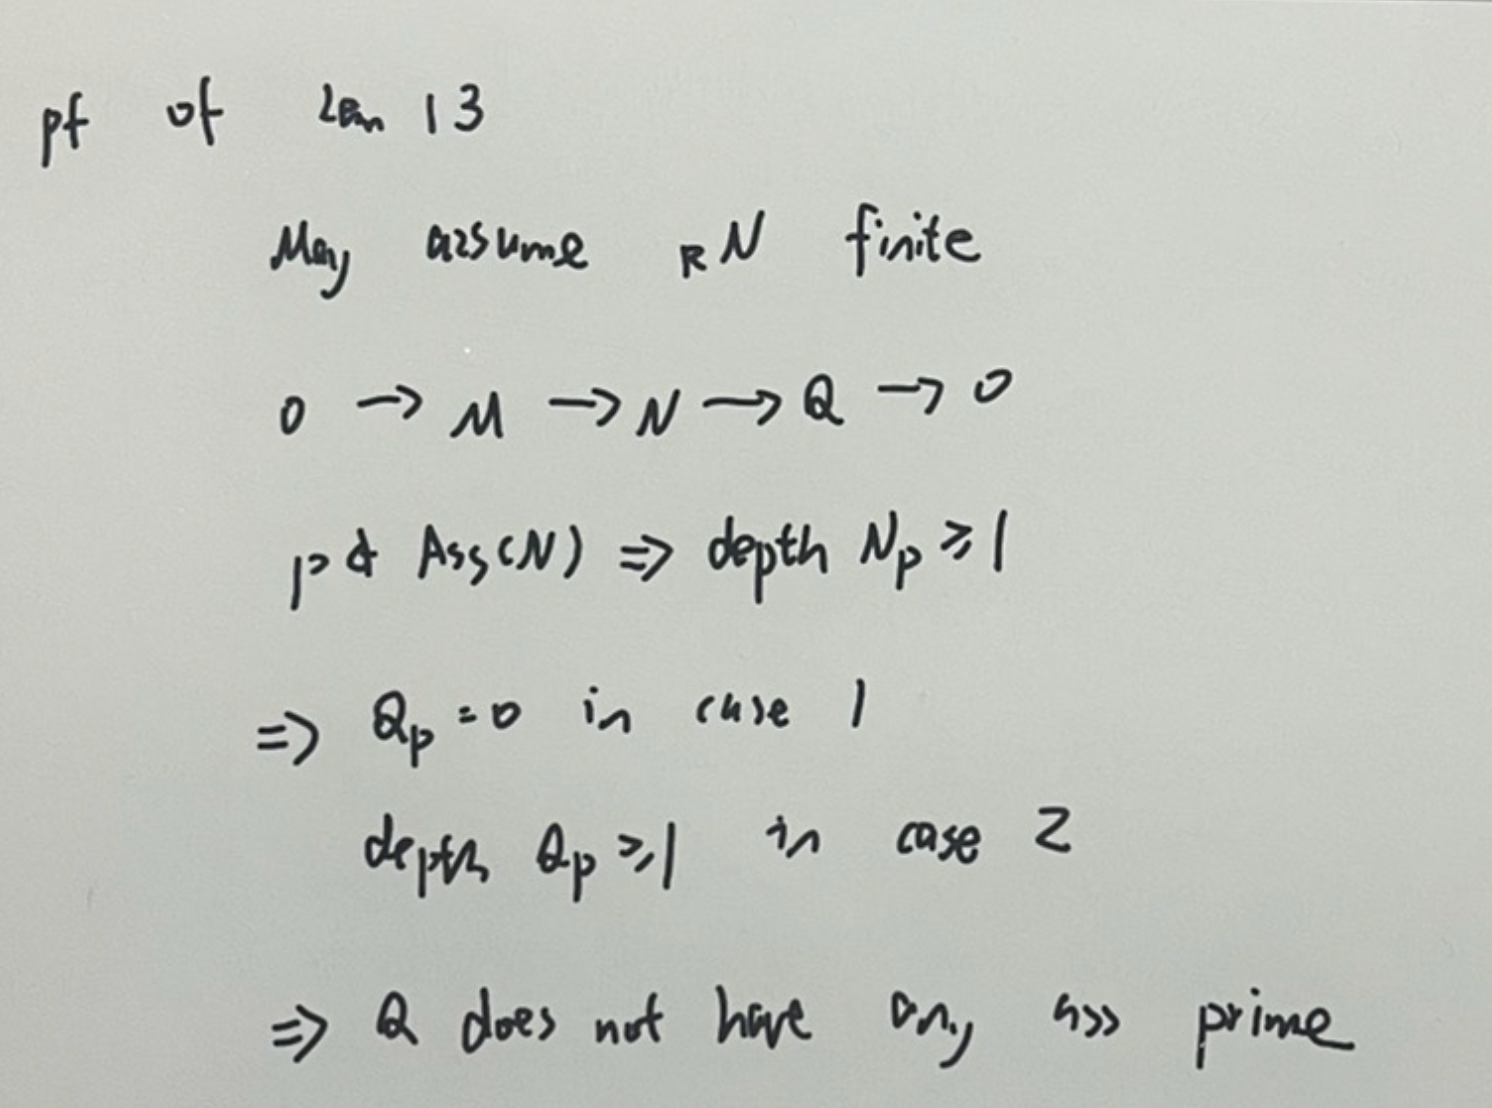 pf of Lem 13
May assume _R N finite
0 → M → N → Q → 0
p ∉ Ass(N) ⇒ depth N_p ≥ 1
⇒ Q_p = 0 in case 1
depth Q_p ≥ 1 in case 2
⇒ Q does not have any ass prime